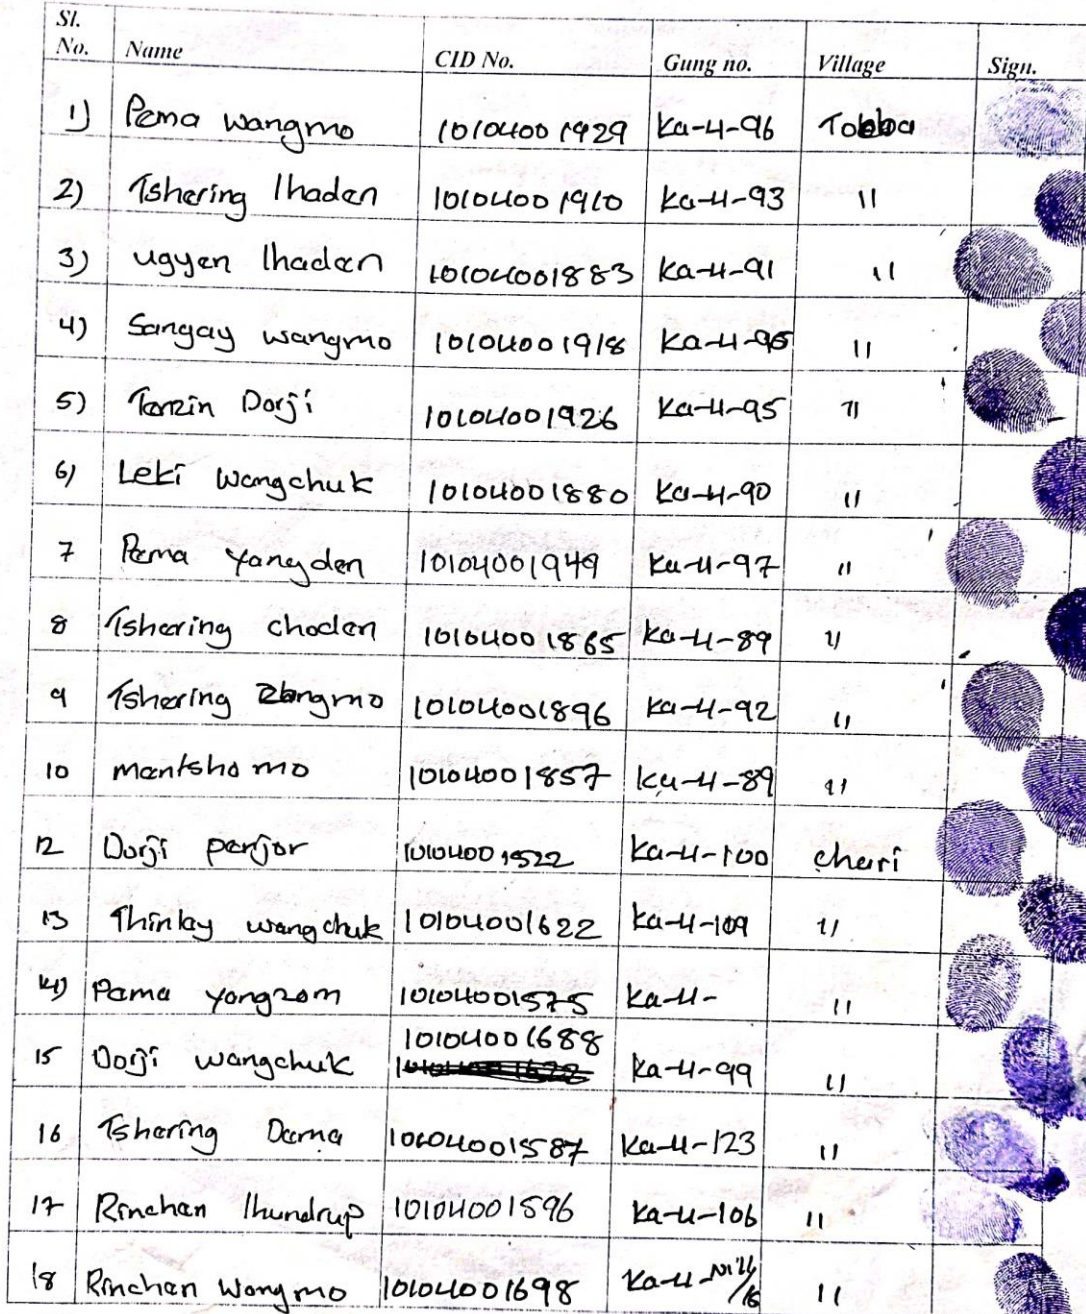 Sl. No. Name CID No. Gung no. Village Sign.
1) Pema wangmo 10104001929 Ka-4-96 Tobba
2) Tshering lhaden 10104001910 Ka-4-93 11
3) ugyen lhaden 10104001883 Ka-4-91 11
4) Sangay wangmo 10104001918 Ka-4-95 11
5) Tenzin Dorji 10104001926 Ka-4-95 11
6) Leki wangchuk 10104001880 Ka-4-90 11
7 Pema yangden 10104001949 Ka-4-97 11
8 Tshering choden 10104001865 Ka-4-89 11
9 Tshering Zangmo 10104001896 Ka-4-92 11
10 mentsho mo 10104001857 Ka-4-89 11
12 Dorji penjor 10104001522 Ka-4-100 cheri
13 Thinley wangchuk 10104001622 Ka-4-109 11
14) Pema yangzom 10104001575 Ka-4- 11
15 Dorji wangchuk 10104001688 Ka-4-99 11
16 Tshering Dema 10104001587 Ka-4-123 11
17 Rinchen lhundrup 10104001596 Ka-4-106 11
18 Rinchen wongmo 10104001698 Ka-4- 11